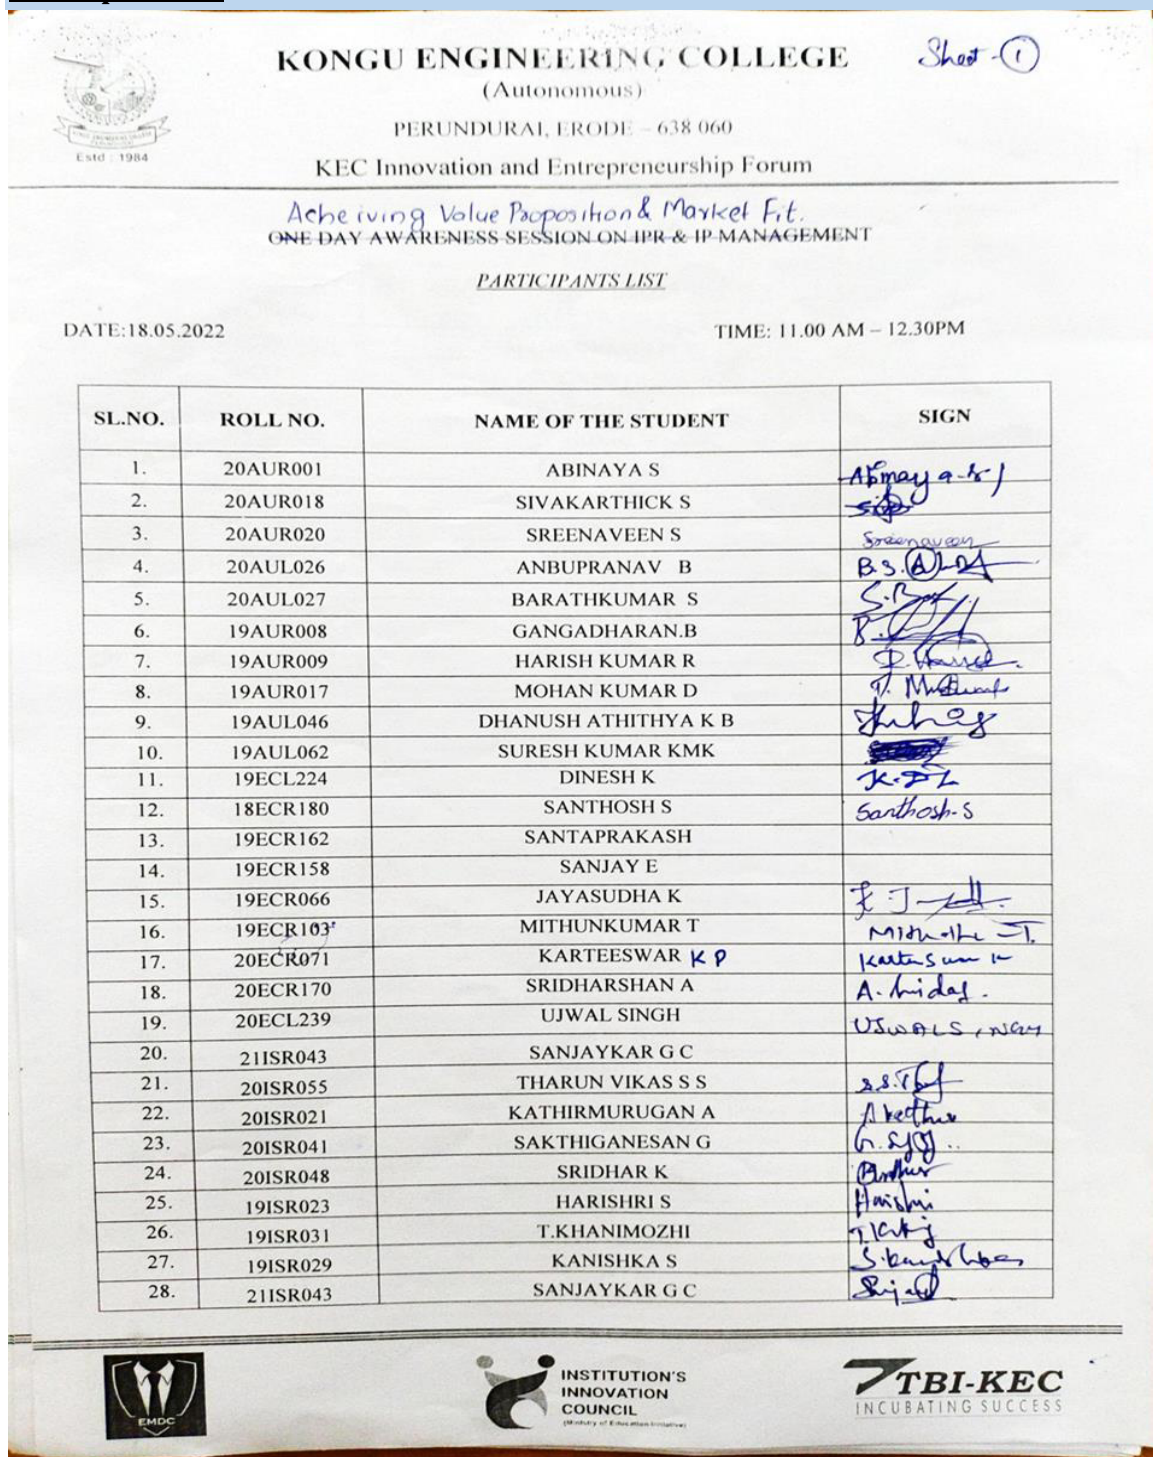 Sheet - 1
KONGU ENGINEERING COLLEGE
(Autonomous)
PERUNDURAI, ERODE – 638 060
Estd : 1984
KEC Innovation and Entrepreneurship Forum
Acheiving Value Proposition & Market Fit.
ONE DAY AWARENESS SESSION ON IPR & IP MANAGEMENT
PARTICIPANTS LIST
DATE:18.05.2022 TIME: 11.00 AM – 12.30PM
SL.NO. ROLL NO. NAME OF THE STUDENT SIGN
1. 20AUR001 ABINAYA S
2. 20AUR018 SIVAKARTHICK S
3. 20AUR020 SREENAVEEN S Sreenaveen
4. 20AUL026 ANBUPRANAV B
5. 20AUL027 BARATHKUMAR S
6. 19AUR008 GANGADHARAN.B
7. 19AUR009 HARISH KUMAR R
8. 19AUR017 MOHAN KUMAR D
9. 19AUL046 DHANUSH ATHITHYA K B
10. 19AUL062 SURESH KUMAR KMK
11. 19ECL224 DINESH K
12. 18ECR180 SANTHOSH S Santhosh-S
13. 19ECR162 SANTAPRAKASH
14. 19ECR158 SANJAY E
15. 19ECR066 JAYASUDHA K
16. 19ECR103 MITHUNKUMAR T
17. 20ECR071 KARTEESWAR K P
18. 20ECR170 SRIDHARSHAN A
19. 20ECL239 UJWAL SINGH
20. 21ISR043 SANJAYKAR G C
21. 20ISR055 THARUN VIKAS S S
22. 20ISR021 KATHIRMURUGAN A
23. 20ISR041 SAKTHIGANESAN G
24. 20ISR048 SRIDHAR K
25. 19ISR023 HARISHRI S Harishri
26. 19ISR031 T.KHANIMOZHI
27. 19ISR029 KANISHKA S
28. 21ISR043 SANJAYKAR G C
EMDC
INSTITUTION'S
INNOVATION
COUNCIL
(Ministry of Education Initiative)
TBI-KEC
INCUBATING SUCCESS